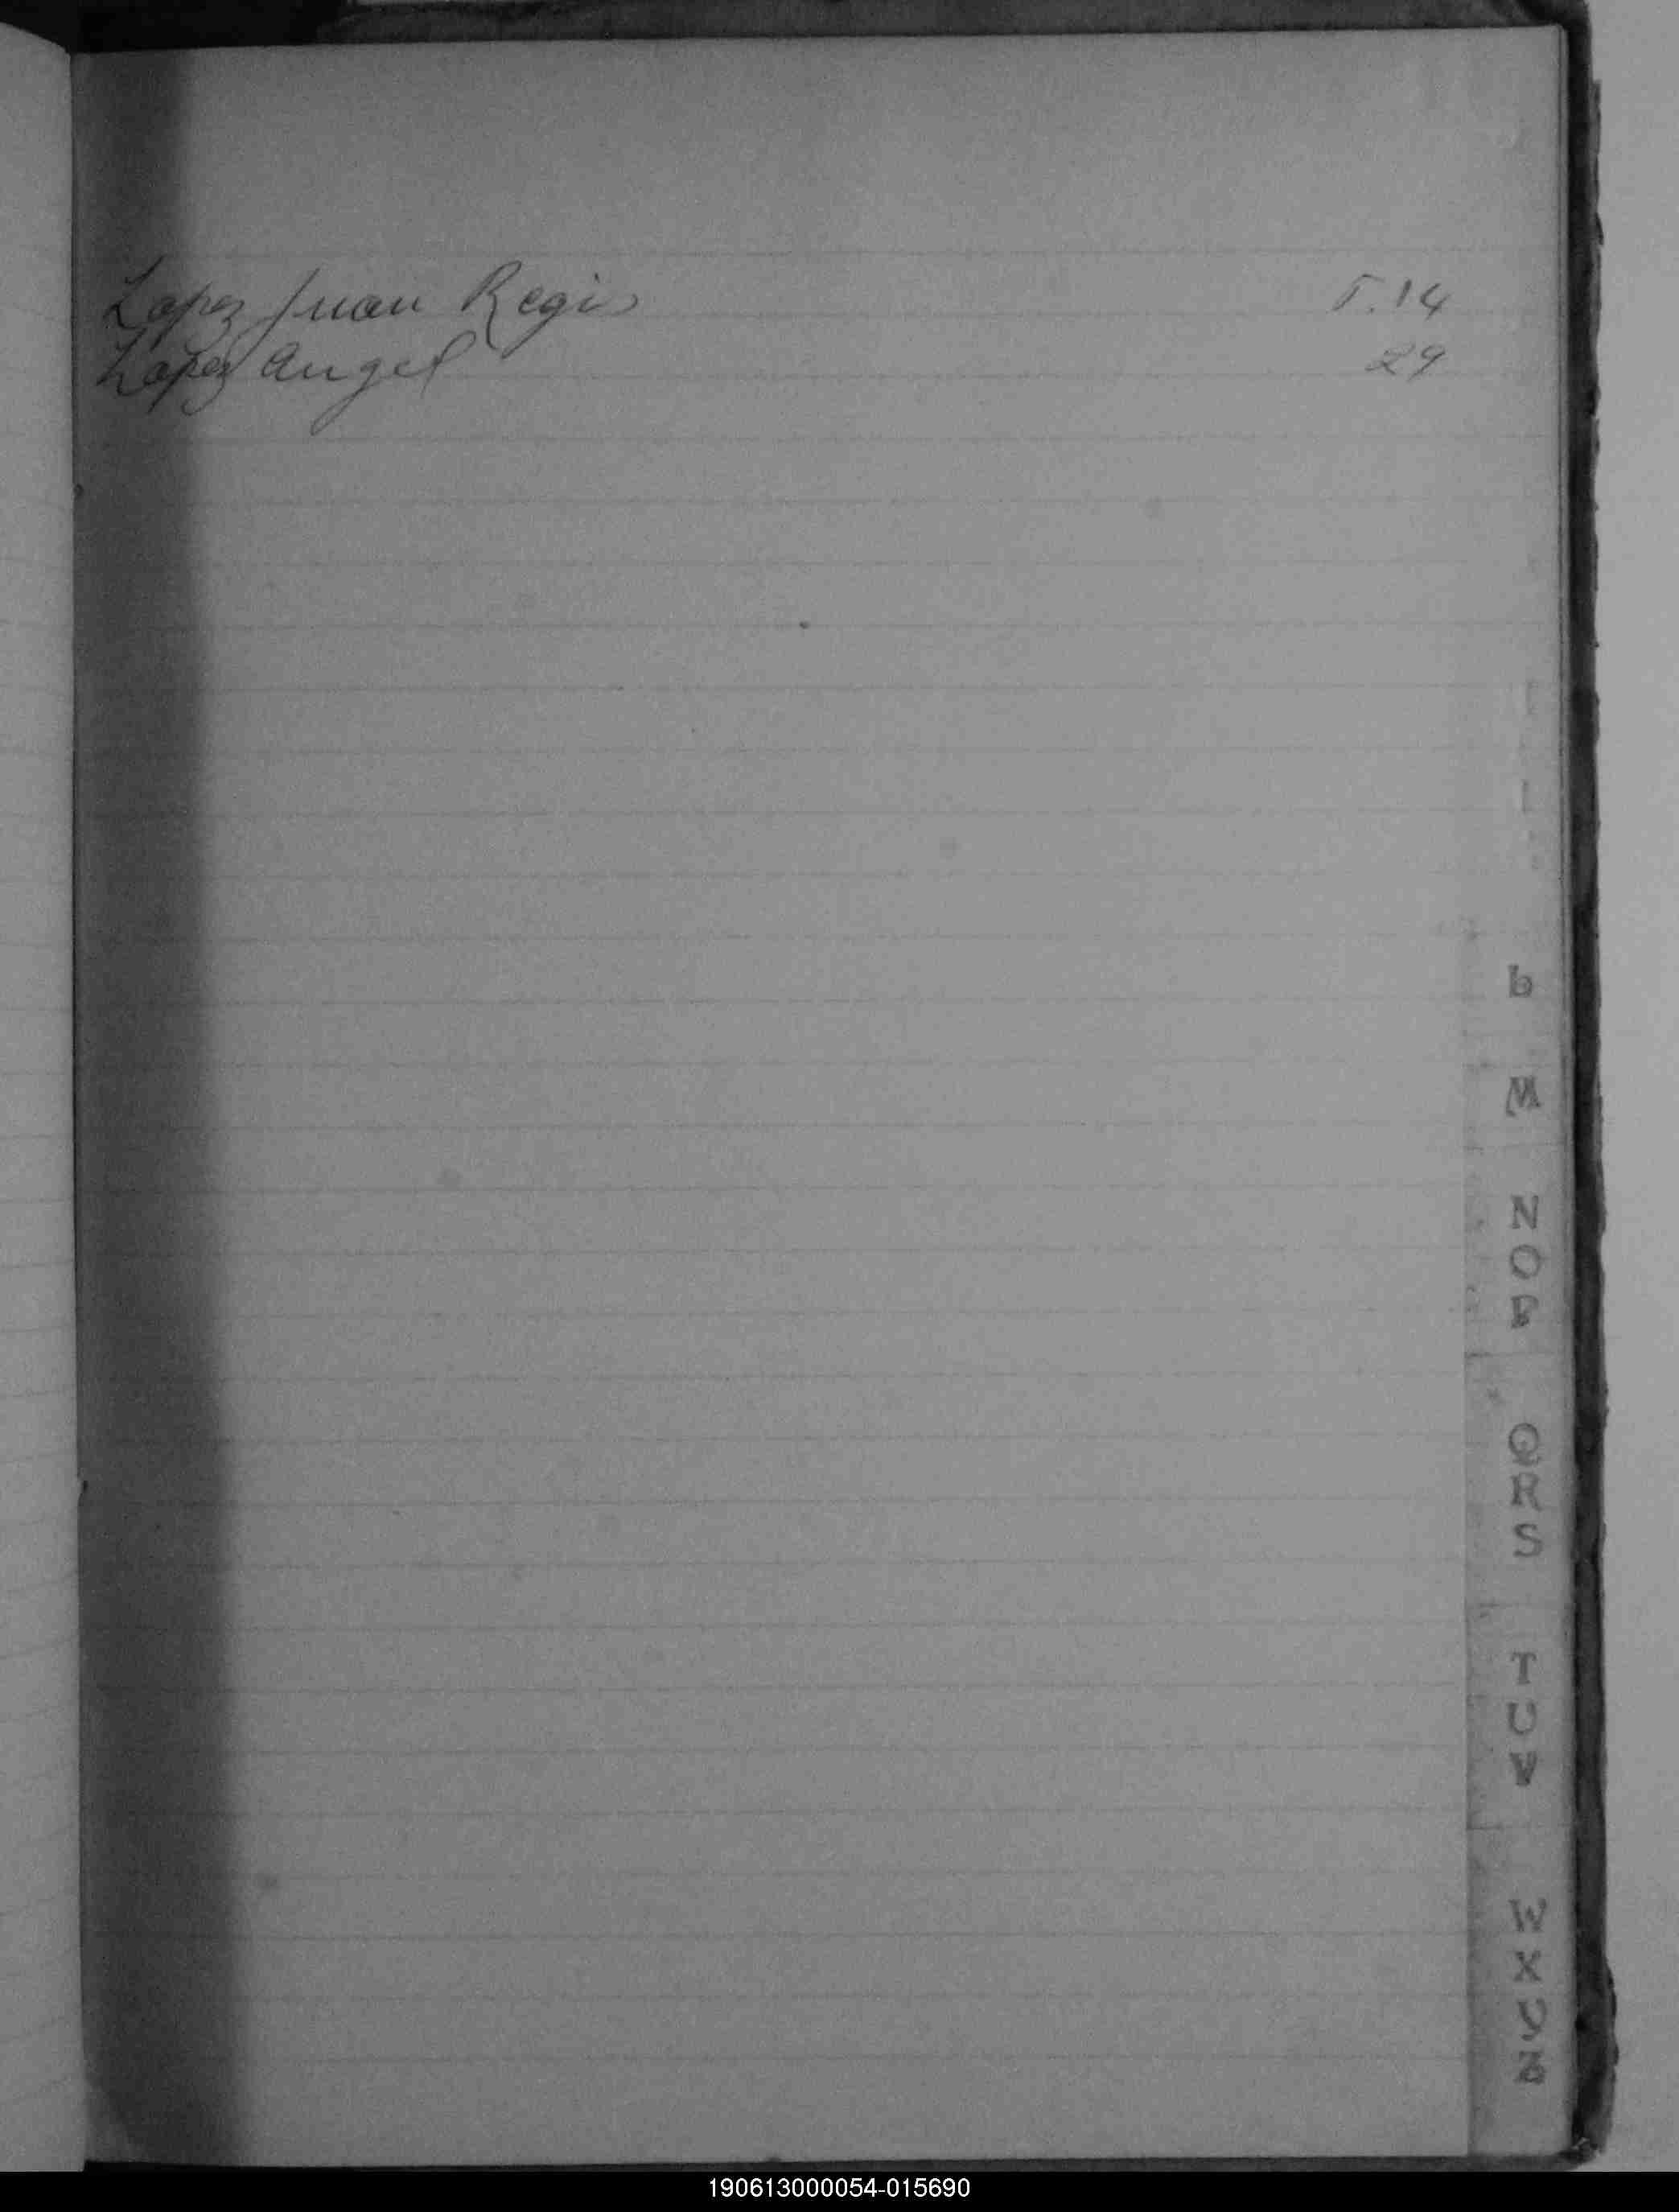 Lopez Juan Regis 5.14
Lopez Angel 29
L
M
N
O
P
Q
R
S
T
U
V
W
X
Y
Z
190613000054-015690